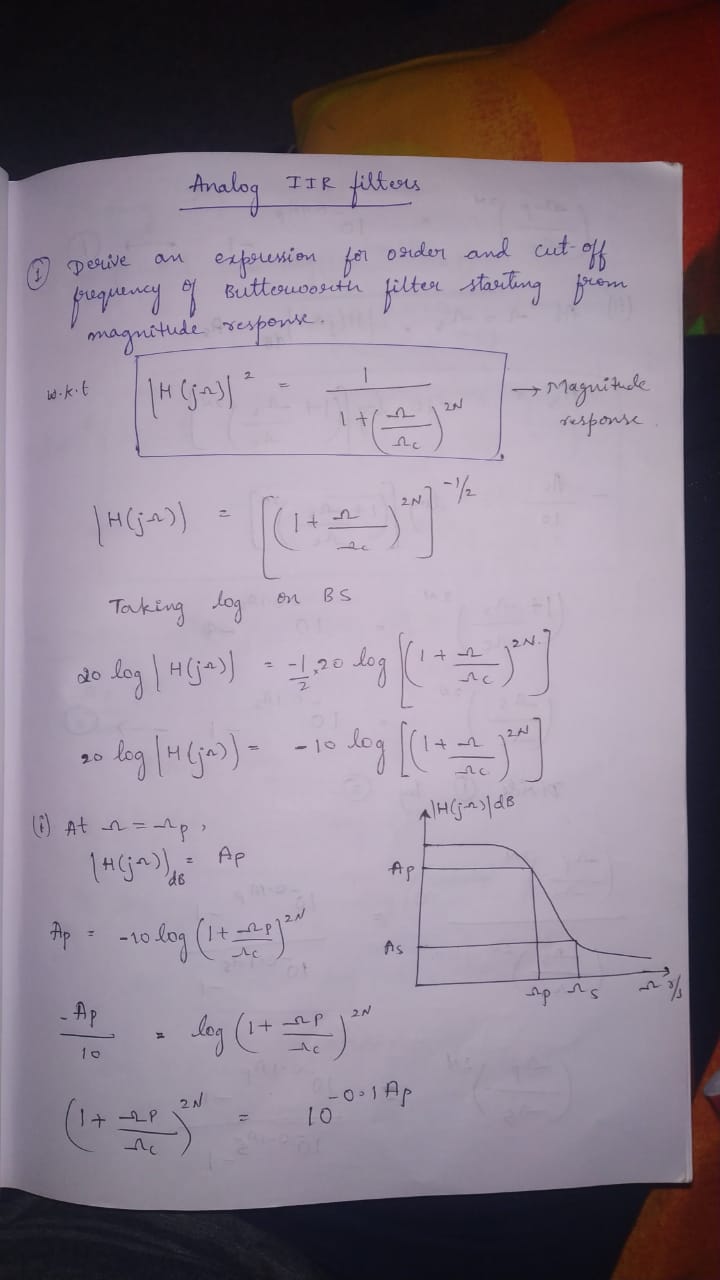 Analog IIR filters
① Derive an expression for order and cut-off
frequency of Butterworth filter starting from
magnitude response.
w.k.t |H(jΩ)|² = 1 / 1+(Ω/Ωc)^2N → Magnitude
response
|H(jΩ)| = [(1+Ω/Ωc)^2N]^-1/2
Taking log on BS
20 log |H(jΩ)| = -1/2 .20 log [(1+Ω/Ωc)^2N]
20 log |H(jΩ)| = -10 log [(1+Ω/Ωc)^2N]
(i) At Ω = Ωp,
|H(jΩ)|dB = Ap
Ap = -10 log (1+Ωp/Ωc)^2N
-Ap/10 = log (1+Ωp/Ωc)^2N
(1+Ωp/Ωc)^2N = 10^-0.1Ap
|H(jΩ)|dB
Ap
As
Ωp Ωs Ω r/s